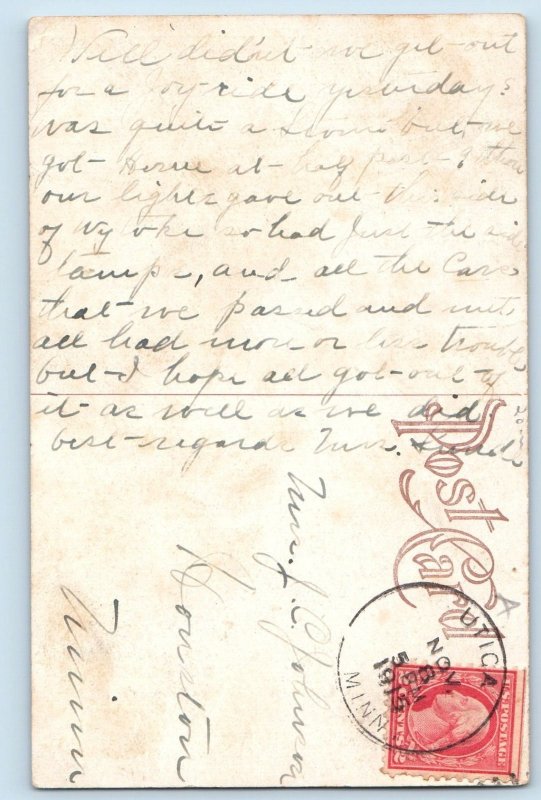 Well didn't we get out
for a Joy ride yesterday?
was quite a storm but we
got Home at half past 9
our lights gave out this side
of Wyoke so had Just the side
lamps, and all the Cars
that we passed and met
all had more or less trouble
but I hope all got out of
it as well as we did
best regards Mrs.
Post Card
Mrs. J. C. Johnson
Houston
Minn
UTICA
NOV
8
1915
MINN
U.S. POSTAGE